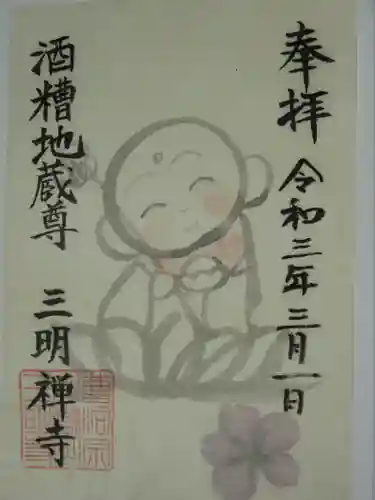 奉拝 令和三年三月一日
酒糟地蔵尊 三明禅寺